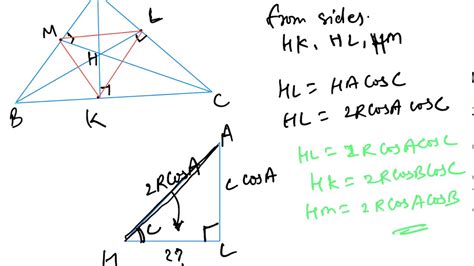 from sides.
HK, HL, HM
M
L
H
B
K
C
HL = HA cos C
HL = 2R cos A cos C
HL = 2R cos A cos C
HK = 2R cos B cos C
HM = 2R cos A cos B
A
2R cos A
C cos A
C
H
2?
L